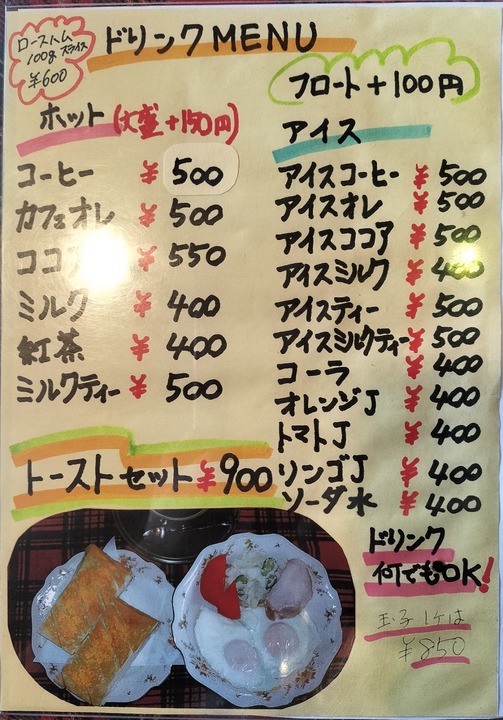 ローストハム
100gスライス
¥600
ドリンクMENU
フロート+100円
ホット(大盛+150円)
コーヒー ¥500
カフェオレ ¥500
ココア ¥550
ミルク ¥400
紅茶 ¥400
ミルクティー ¥500
アイス
アイスコーヒー ¥500
アイスオレ ¥500
アイスココア ¥500
アイスミルク ¥400
アイスティー ¥500
アイスミルクティー ¥500
コーラ ¥400
オレンジJ ¥400
トマトJ ¥400
リンゴJ ¥400
ソーダ水 ¥400
トーストセット ¥900
ドリンク
何でもOK!
玉子1ケは
¥850